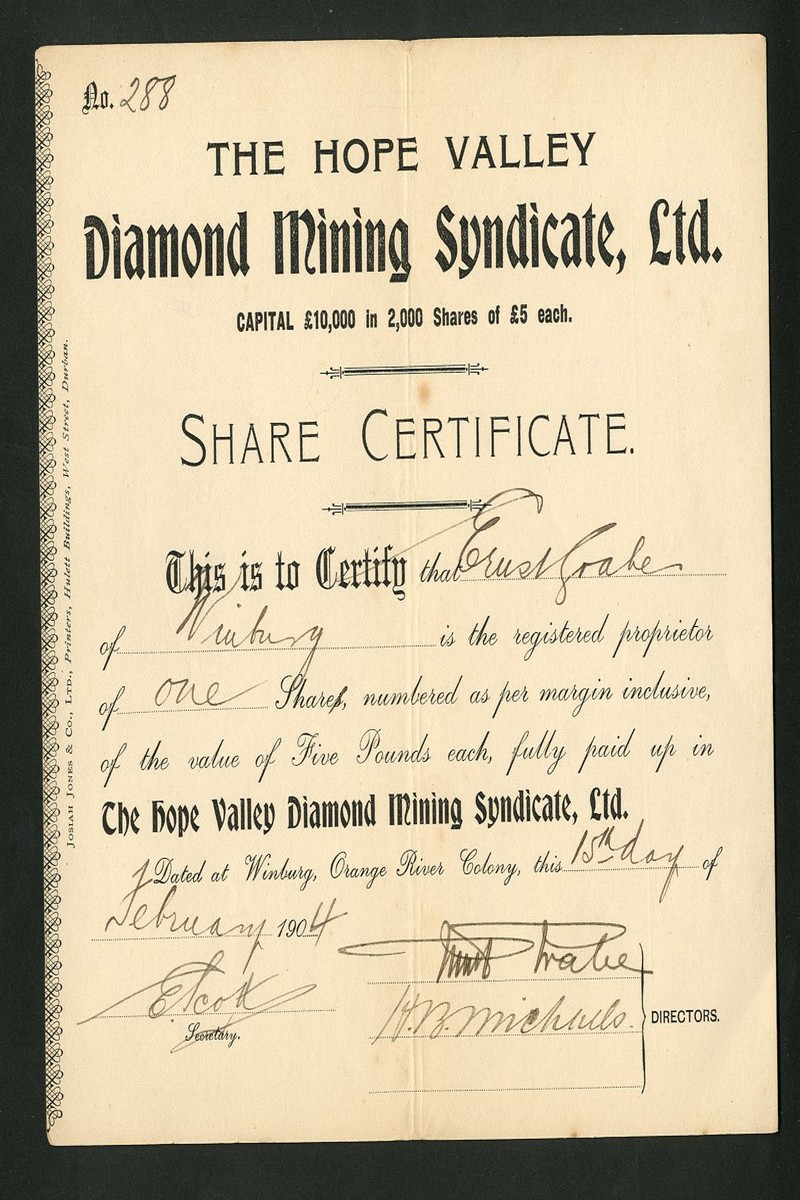 No. 288
THE HOPE VALLEY
Diamond Mining Syndicate, Ltd.
CAPITAL £10,000 in 2,000 Shares of £5 each.
SHARE CERTIFICATE.
This is to Certify that Ernst Grabe
of Winburg is the registered proprietor
of one Shares, numbered as per margin inclusive,
of the value of Five Pounds each, fully paid up in
The Hope Valley Diamond Mining Syndicate, Ltd.
Dated at Winburg, Orange River Colony, this 15th day of
February 1904
Ernst Grabe
E. Scott
H.B. Michaels.
DIRECTORS.
Secretary.
JOSIAH JONES & CO., LTD., Printers, Hulett Buildings, West Street, Durban.